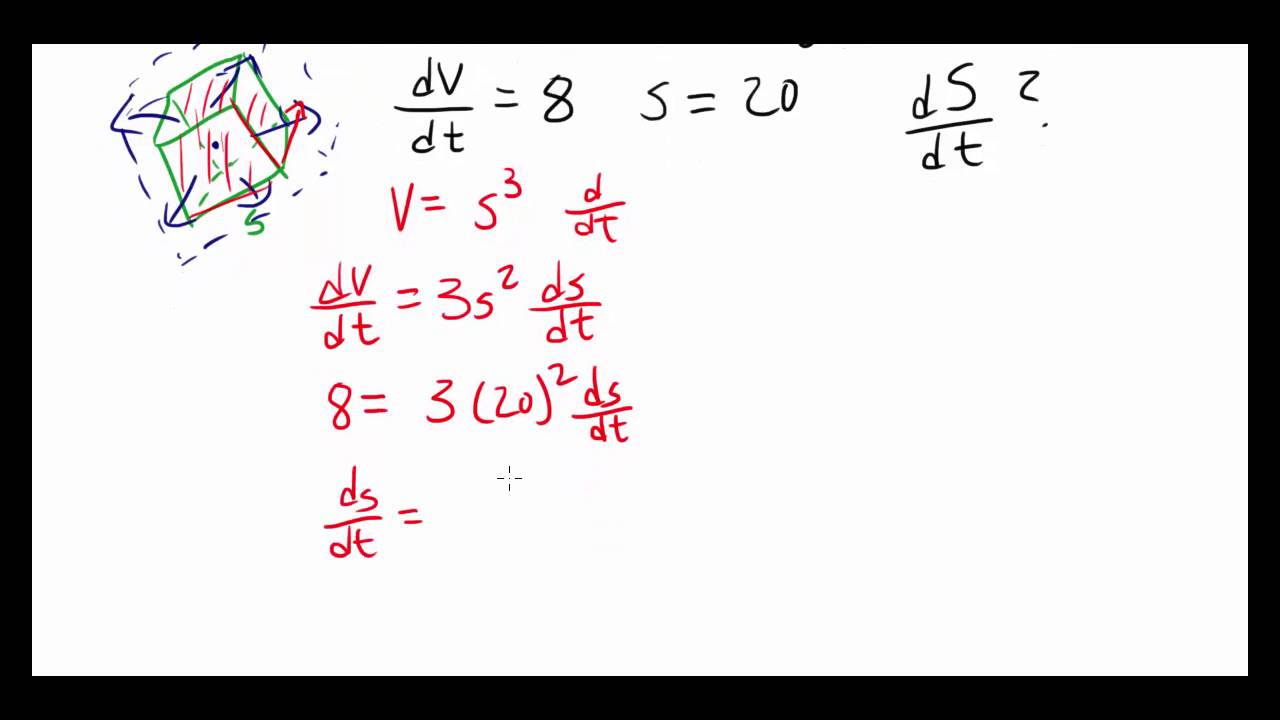 dV/dt = 8 s = 20 dS/dt ?
s
V = s³ d/dt
dV/dt = 3s² ds/dt
8 = 3(20)² ds/dt
ds/dt =